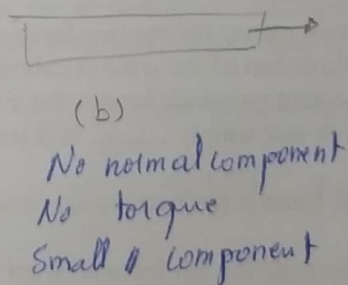 (b)
No normal component
No torque
Small || component